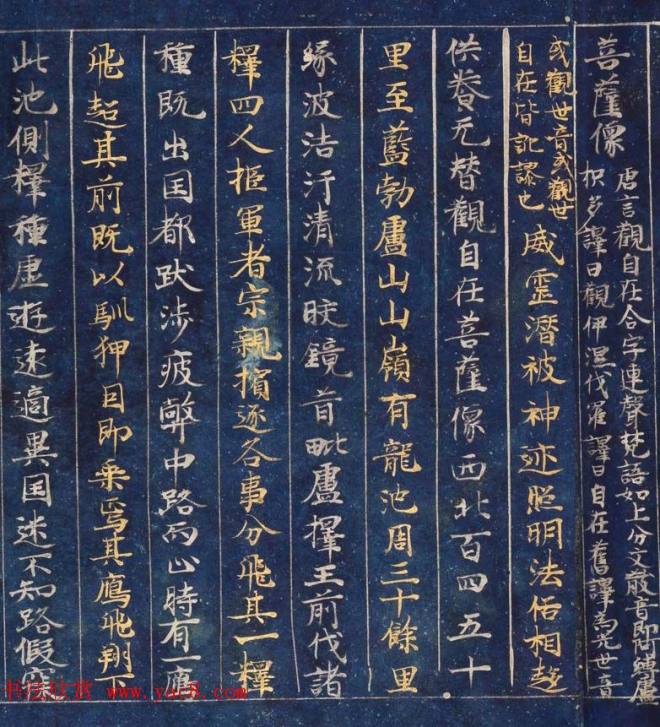 菩薩像
唐言觀自在合字連聲梵語如上分文散音即阿縛盧
枳多譯曰觀伊濕伐羅譯曰自在舊譯為光世音
或觀世音或觀世
自在皆訛謬也
威霊潛被神迹照明法俗相趍
供養无替觀自在菩薩像西北百四五十
里至藍勃盧山山嶺有龍池周三十餘里
緣波浩汗清流皎鏡昔毗盧擇王前伐諸
釋四人拒軍者宗親擯逐各事分飛其一釋
種既出国都跋涉疲弊中路而止時有一鴈
飛趍其前既以馴狎因即乗焉其鴈飛翔下
此池側釋種虛遊遠適異国迷不知路假寐
书法欣赏 www.yac8.com